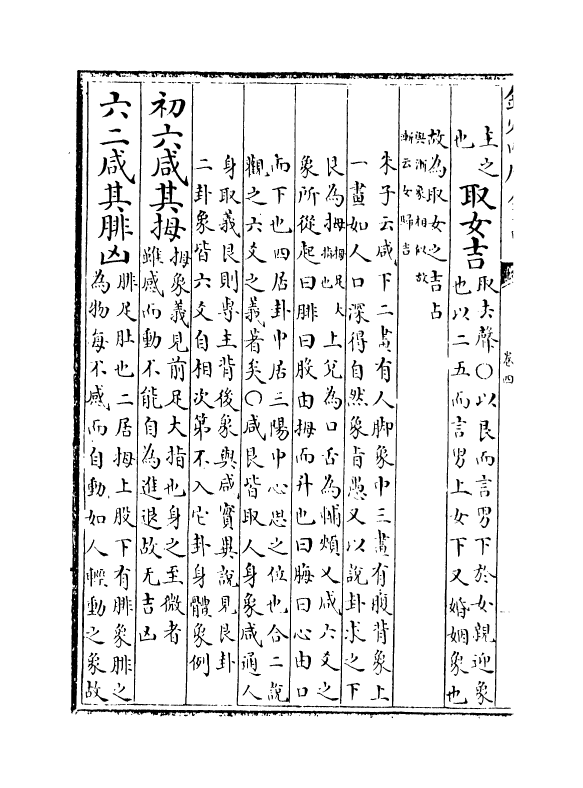 卷四
主之
也
取女吉
取去聲〇以艮而言男下於女親迎象
也以二五而言男上女下又婚姻象也
故為取女之吉占
與漸象相似故
漸云女歸吉
朱子云咸下二畫有人脚象中三畫有腹背象上
一畫如人口深得自然象旨愚又以說卦求之下
艮為拇拇足大指也上兌為口舌為輔頰又咸六爻之
象所從起曰腓曰股由拇而升也曰脢曰心由口
而下也四居卦中居三陽中心思之位也合二說
觀之六爻之義著矣〇咸艮皆取人身象咸通人
身取義艮則專主背後象與咸實異說見艮卦
二卦象皆六爻自相次第不入它卦身體象例
初六咸其拇
拇象義見前足大指也身之至微者
雖感而動不能自為進退故无吉凶
六二咸其腓凶
腓足肚也二居拇上股下有腓象腓之
為物每不感而自動如人輕動之象故